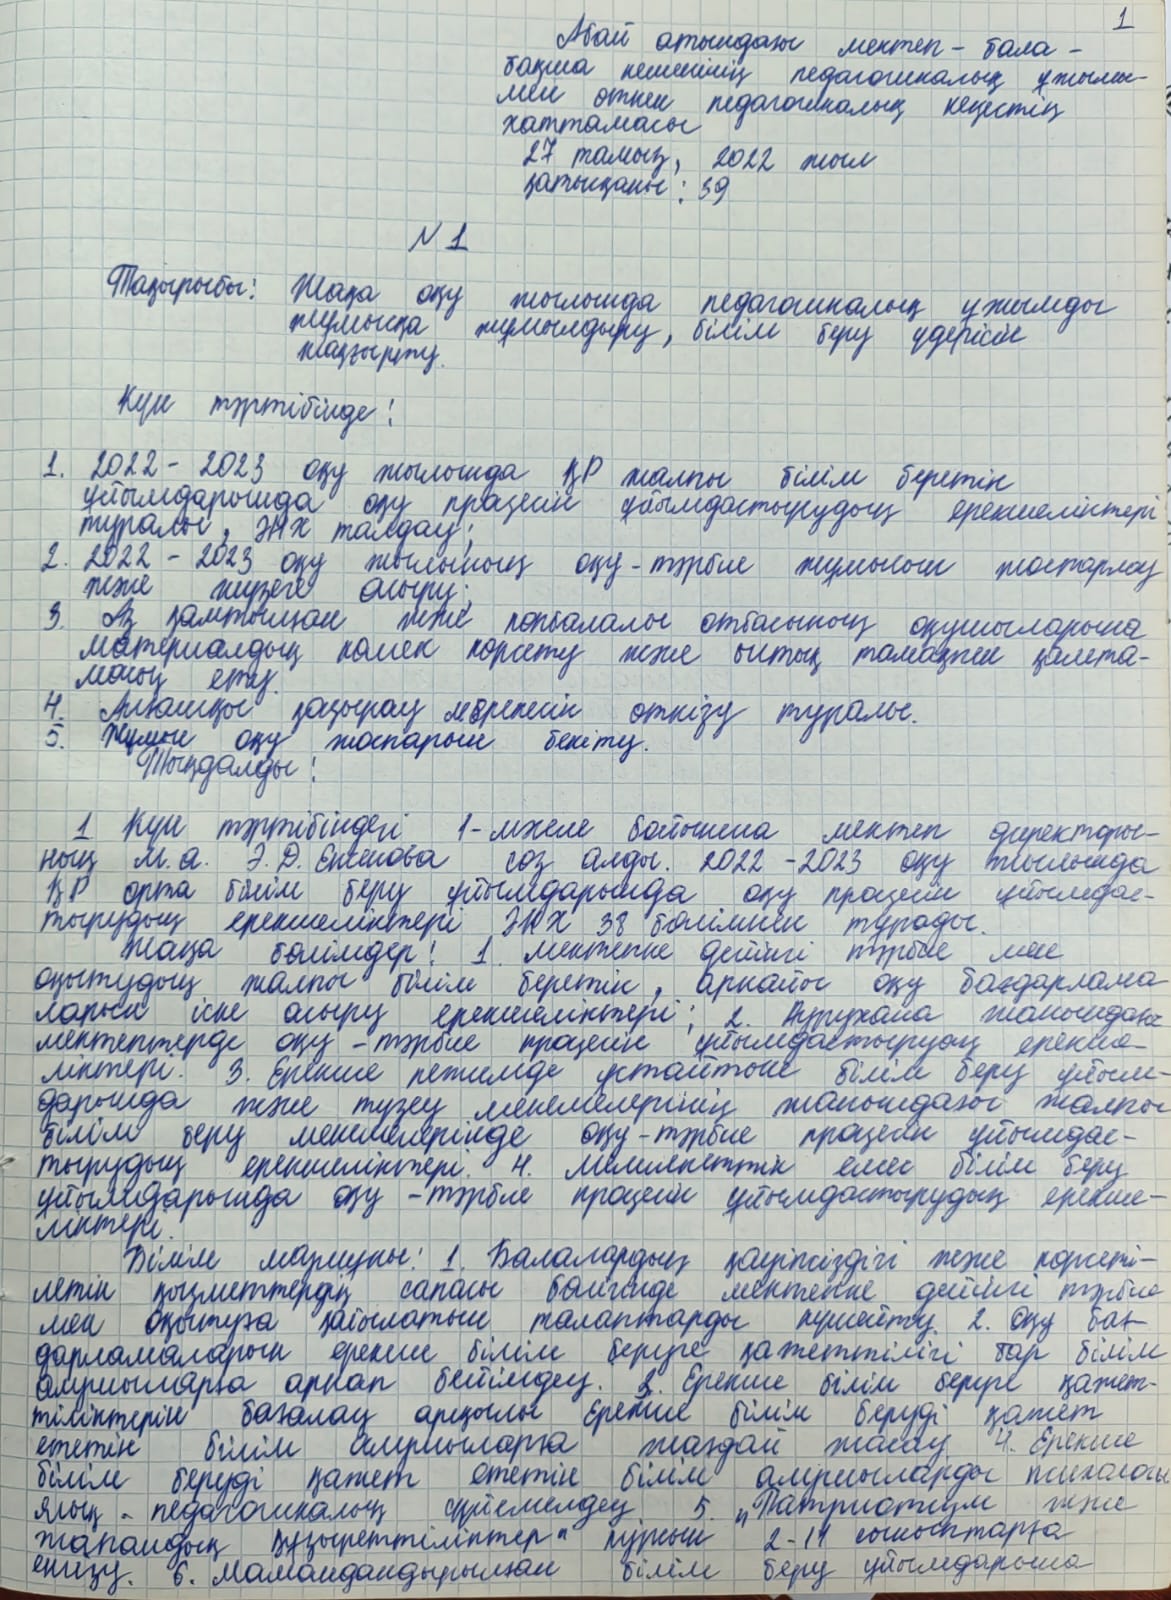 1
Абай атындағы мектеп - бала -
бақша кешенінің педагогикалық ұжымы-
мен өткен педагогикалық кеңестің
хаттамасы
27 тамыз, 2022 жыл
қатысқаны: 39
N 1
Тақырыбы: Жаңа оқу жылында педагогикалық ұжымды
жұмысқа жұмылдыру, білім беру үдерісін
жаңғырту.
Күн тәртібінде:
1. 2022 - 2023 оқу жылында ҚР жалпы білім беретін
ұйымдарында оқу процесін ұйымдастырудың ерекшеліктері
туралы, ӘНХ талдау;
2. 2022 - 2023 оқу жылының оқу-тәрбие жұмысын жоспарлау
және жүзеге асыру;
3. Аз қамтылған және көпбалалы отбасының оқушыларына
материалдық көмек көрсету және ыстық тамақпен қамта-
масыз ету.
4. Алғашқы қоңырау мерекесін өткізу туралы.
5. Жұмыс оқу жоспарын бекіту.
Тыңдалды:
1 Күн тәртібіндегі 1-мәселе бойынша мектеп директоры-
ның м.а. Э. Д. сөз алды. 2022 - 2023 оқу жылында
ҚР орта білім беру ұйымдарында оқу процесін ұйымдас-
тырудың ерекшеліктері ӘНХ 38 бөлімнен тұрады.
Жаңа бөлімдер: 1. мектепке дейінгі тәрбие мен
оқытудың жалпы білім беретін, арнайы оқу бағдарлама
ларын іске асыру ерекшеліктері; 2. Аурухана жанындағы
мектептерде оқу - тәрбие процесін ұйымдастыруың ерекше-
ліктері. 3. Ерекше режимде ұстайтын білім беру ұйым-
дарында және түзеу мекемелерінің жанындағы жалпы
білім беру мекемелерінде оқу-тәрбие процесін ұйымдас-
тырудың ерекшеліктері. 4. Мемлекеттік емес білім беру
ұйымдарында оқу - тәрбие процесін ұйымдастырудың ерекше-
ліктері.
Білім мазмұны: 1. Балалардың қауіпсіздігі және көрсеті-
летін қызметтердің сапасы бөлігінде мектепке дейінгі тәрбие
мен оқытуға қойылатын талаптарды күшейту. 2. Оқу бағ-
дарламаларын ерекше білім беруге қажеттілігі бар білім
алушыларға арнап бейімдеу. 3. Ерекше білім беруге қажет-
тіліктерін бағалау арқылы Ерекше білім беруді қажет
ететін білім алушыларға жағдай жасау 4. Ерекше
білім беруді қажет ететін білім алушыларды психологи
ялық - педагогикалық сүйемелдеу 5. „Патриотизм және
жаһандық құзыреттіліктер" курсын 2-11 сыныптарға
енгізу. 6. Мамандандырылған білім беру ұйымдарына